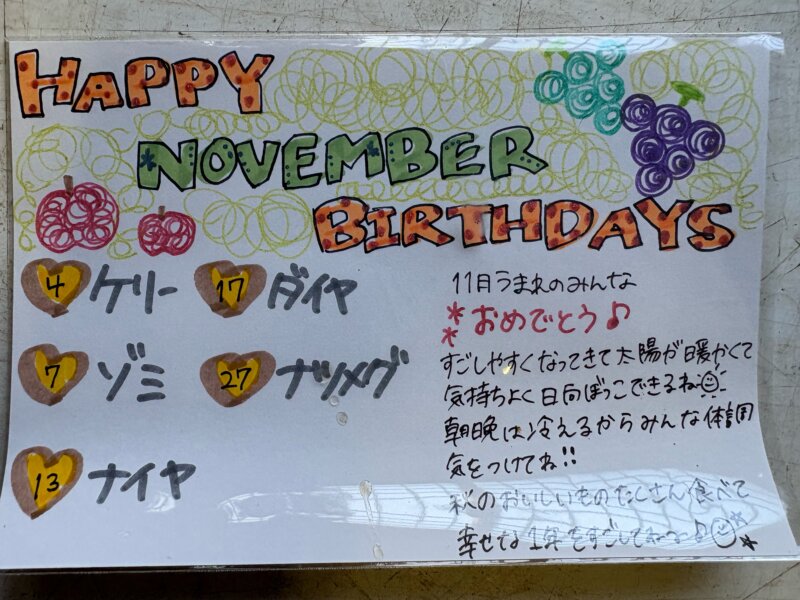 HAPPY
NOVEMBER
BIRTHDAYS
4 ケリー
17 ダイヤ
7 ゾミ
27 ナツメグ
13 ナイヤ
11月うまれのみんな
*おめでとう♪
*
すごしやすくなってきて太陽が暖かくて
気持ちよく日向ぼっこできるね
朝晩は冷えるからみんな体調
気をつけてね!!
秋のおいしいものたくさん食べて
幸せな1年をすごしてねー♪